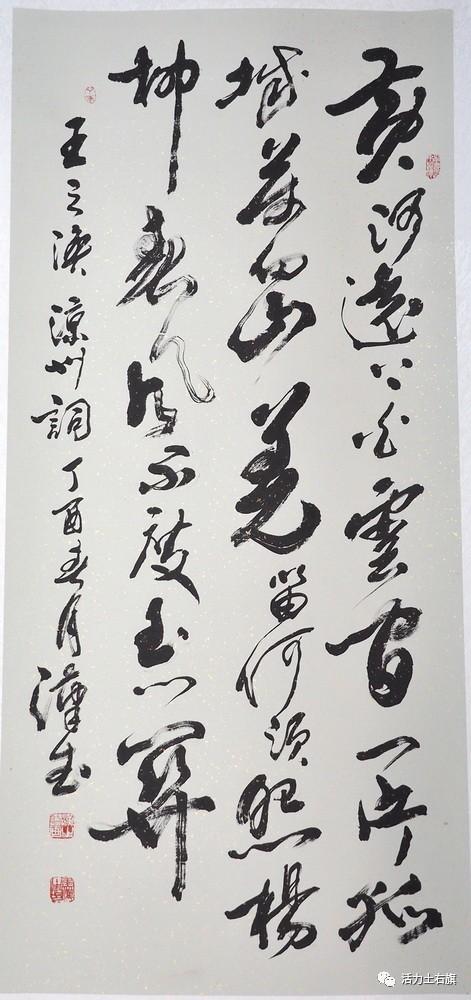 黄河遠上白雲間一片孤
城萬仞山羌笛何須怨楊
柳春風不度玉門關
王之渙涼州詞丁酉春月
活力土右旗